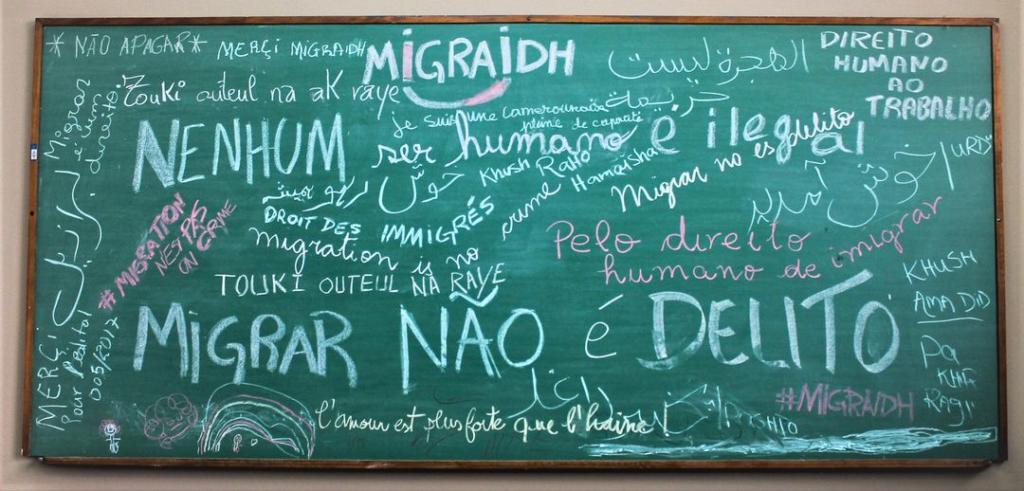 * NÃO APAGAR *
MERÇi MiGRAiDH
MiGRAiDH
الهجرة ليست
جريمة
DIREITO
HUMANO
AO
TRABALHO
Touki outeul na ak raye
je suis une Camerounaise
pleine de capacité
NENHUM ser humano é ilegal
Migrar
é um
direito
Khush Raho
Hamaisha
Migrar no es delito
خوش آمدید
URDU
DROIT DES IMMIGRÉS
migration is no crime
#MIGRATION
N'ES PAS
UN CRIME
Pelo direito
humano de imigrar
TOUKI OUTEUL NA RAYE
KHUSH
AMADID
MiGRAR NÃO é DELITO
MERÇi
pour
PA
KHE
RAGI'
#MIGRAIDH
l'amour est plus forte que l'haine!